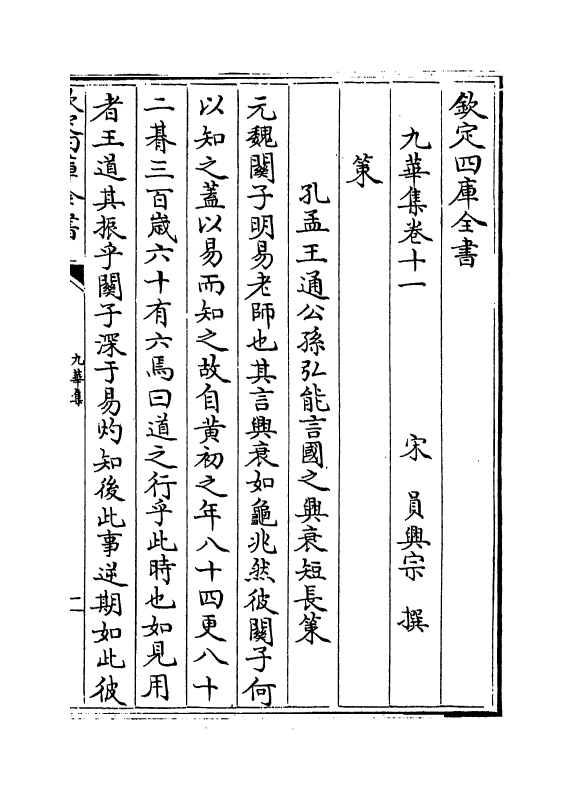 欽定四庫全書
九華集卷十一
宋 員興宗 撰
策
孔孟王通公孫弘能言國之興衰短長策
元魏關子明易老師也其言興衰如龜兆然彼關子何
以知之蓋以易而知之故自黃初之年八十四更八十
二朞三百歲六十有六焉曰道之行乎此時也如見用
者王道其振乎關子深于易灼知後此事逆期如此彼
欽定四庫全書
九華集